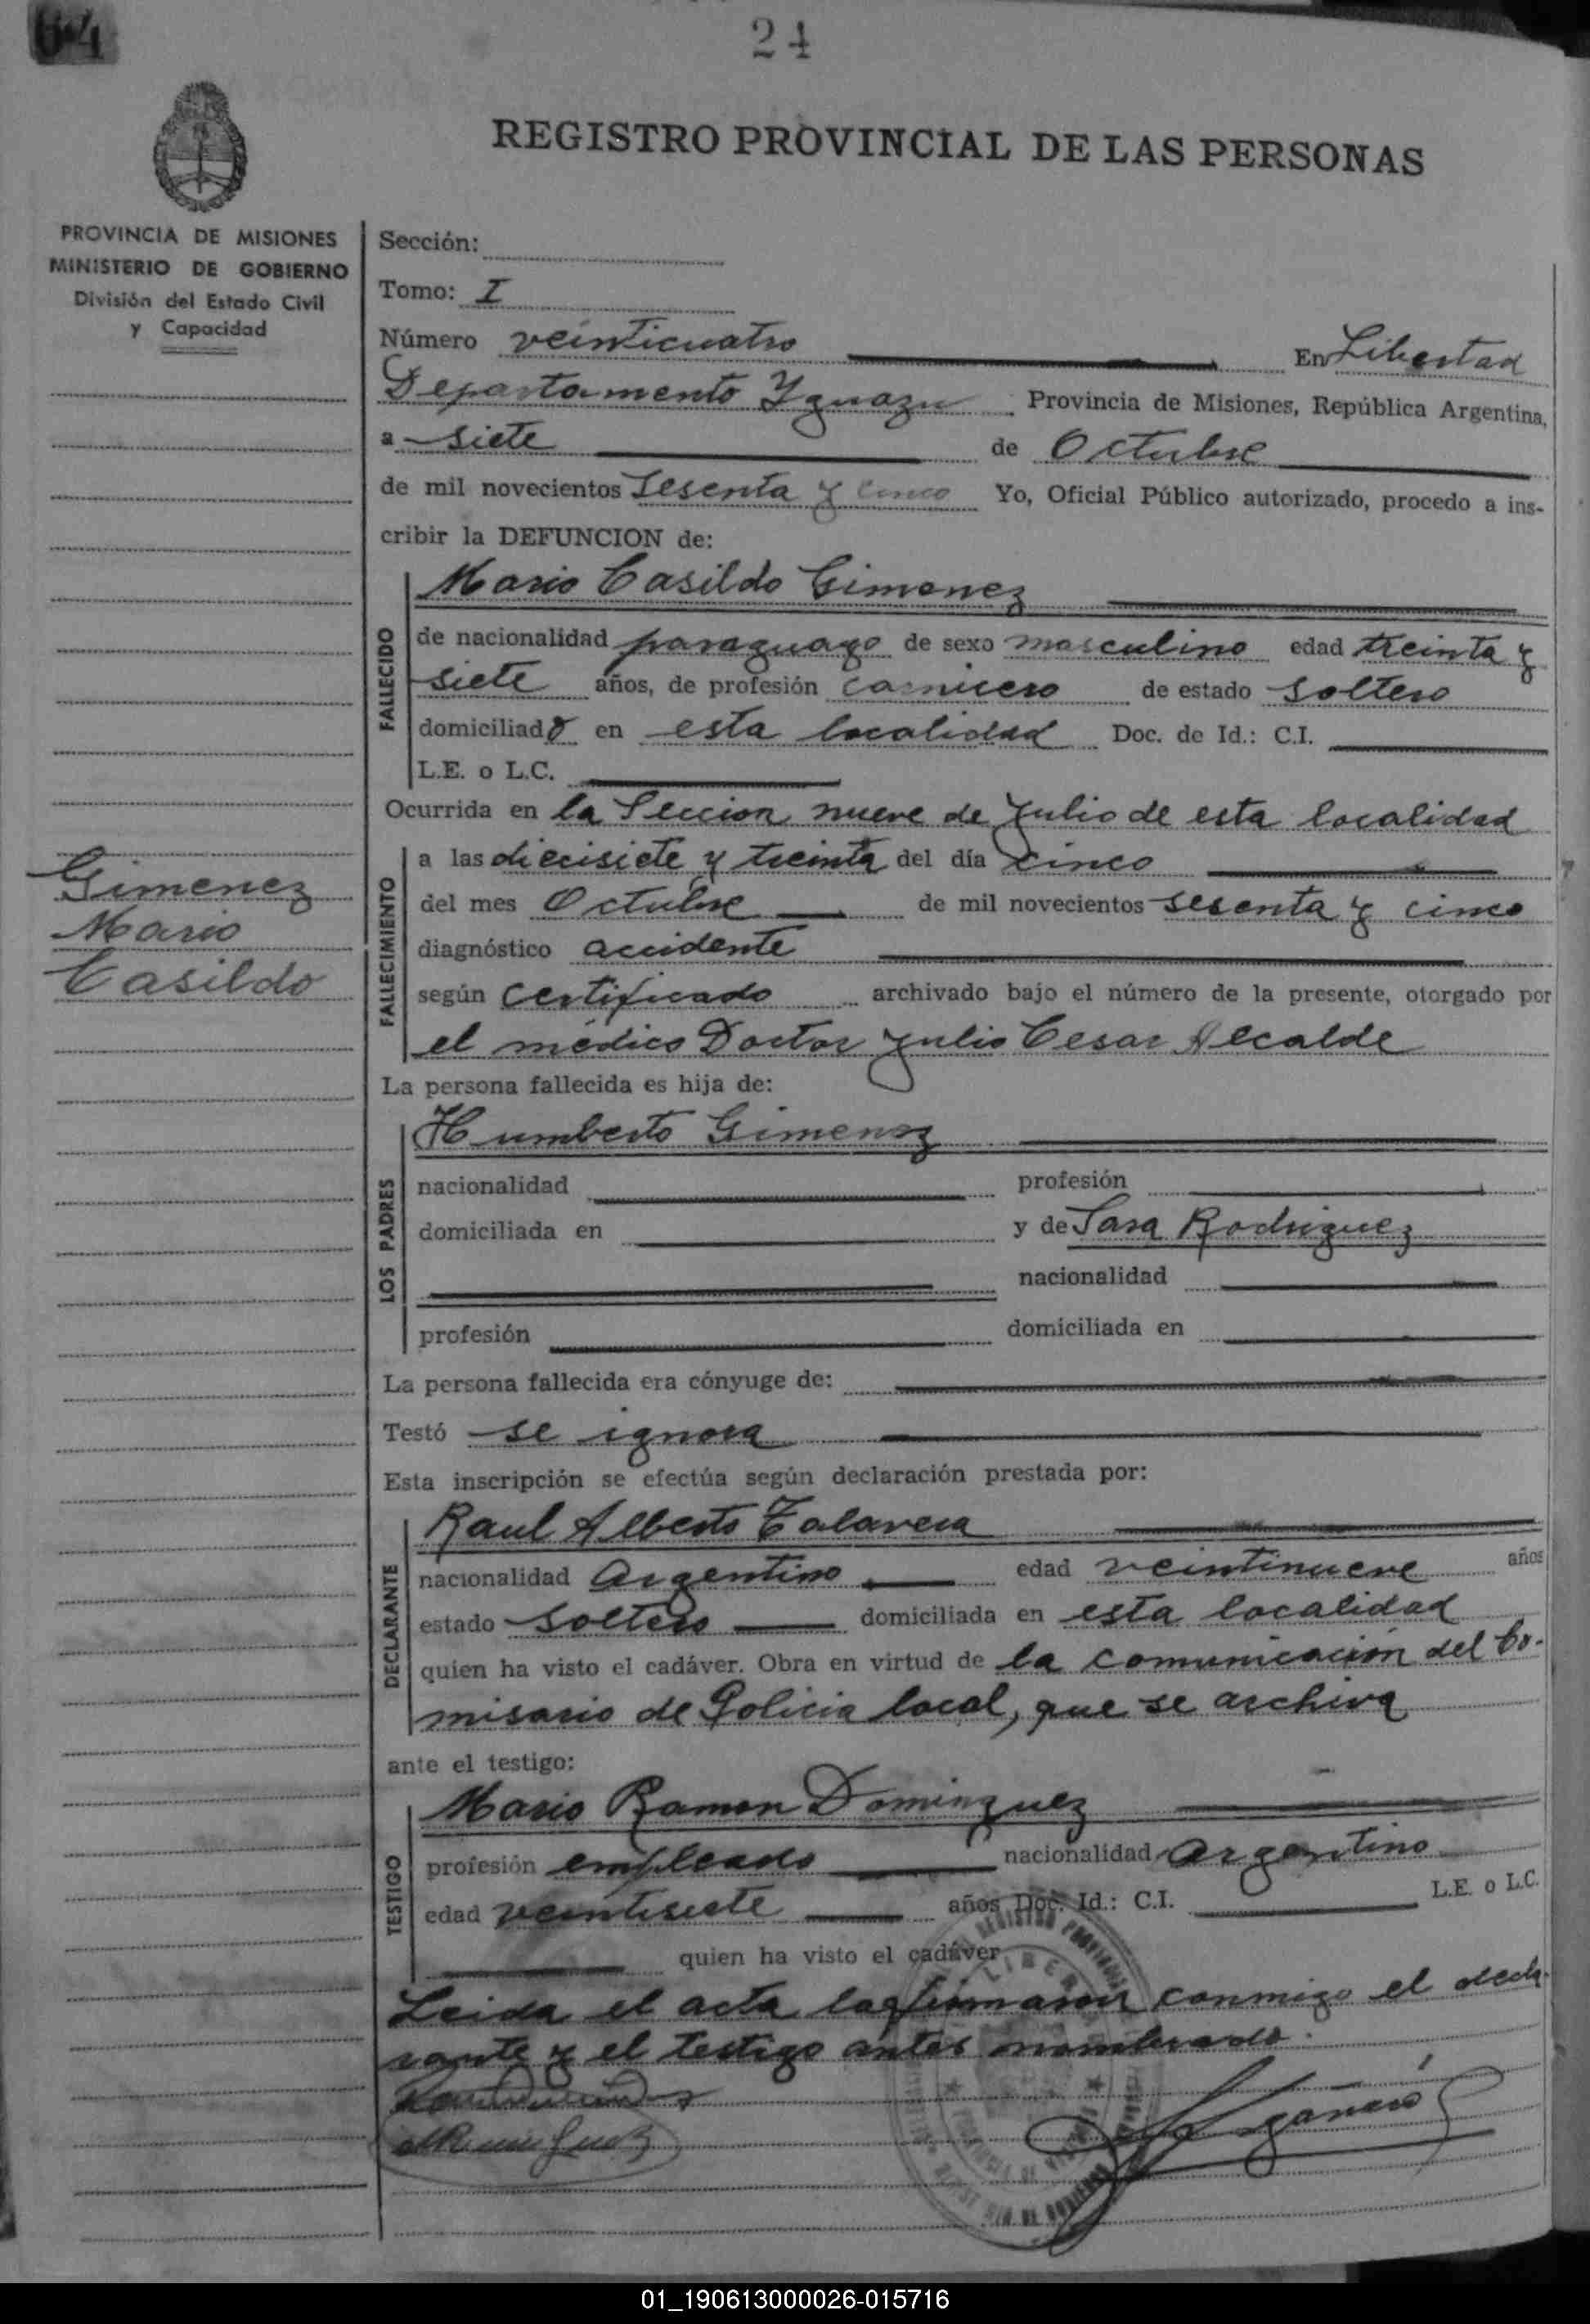 64
24
REGISTRO PROVINCIAL DE LAS PERSONAS
PROVINCIA DE MISIONES
MINISTERIO DE GOBIERNO
División del Estado Civil
y Capacidad
Gimenez
Mario
Casildo
Sección:
Tomo: I
Número veinticuatro En Libertad
Departamento Yguazu Provincia de Misiones, República Argentina,
a siete de Octubre
de mil novecientos sesenta y cinco Yo, Oficial Público autorizado, procedo a ins-
cribir la DEFUNCION de:
FALLECIDO
Mario Casildo Gimenez
de nacionalidad paraguayo de sexo masculino edad treinta y
siete años, de profesión carnicero de estado soltero
domiciliado en esta localidad Doc. de Id.: C.I.
L.E. o L.C.
Ocurrida en la Seccion nueve de Julio de esta localidad
FALLECIMIENTO
a las diecisiete y treinta del día cinco
del mes Octubre de mil novecientos sesenta y cinco
diagnóstico accidente
según certificado archivado bajo el número de la presente, otorgado por
el médico Doctor Julio Cesar Alcalde
La persona fallecida es hija de:
LOS PADRES
Humberto Gimenez
nacionalidad profesión
domiciliada en y de Sara Rodriguez
nacionalidad
profesión domiciliada en
La persona fallecida era cónyuge de:
Testó se ignora
Esta inscripción se efectúa según declaración prestada por:
DECLARANTE
Raul Alberto Talavera
nacionalidad Argentino edad veintinueve años
estado soltero domiciliada en esta localidad
quien ha visto el cadáver. Obra en virtud de la comunicación del Co-
misario de Policia local, que se archiva
ante el testigo:
TESTIGO
Mario Ramon Dominguez
profesión empleado nacionalidad Argentino
edad veintisiete años Doc. Id.: C.I. L.E. o L.C.
quien ha visto el cadáver
Leida el acta la firmaron conmigo el decla-
rante y el testigo antes nombrado.
01_190613000026-015716